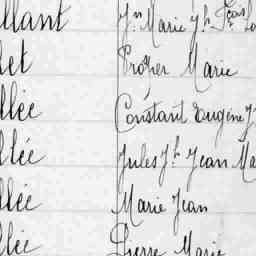 llant Jn Marie Jh Fçois Lo
let Prosper Marie
llée Constant Eugène J
llée Jules Jh Jean Ma
llée Marie Jean
llée Pierre Marie